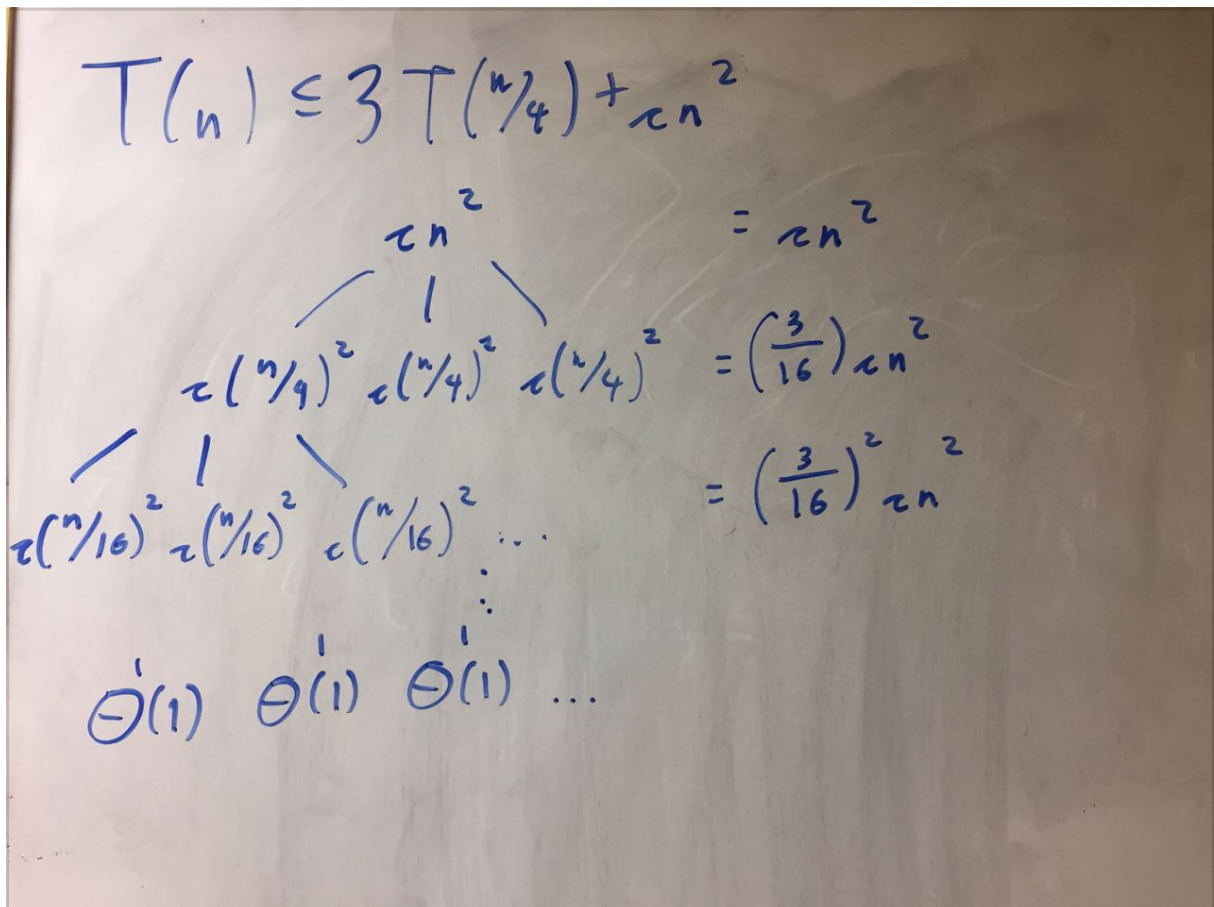 T(n) ≤ 3 T(n/4) + cn²
cn² = cn²
c(n/4)² c(n/4)² c(n/4)² = (3/16) cn²
c(n/16)² c(n/16)² c(n/16)² ... = (3/16)² cn²
Θ(1) Θ(1) Θ(1) ...